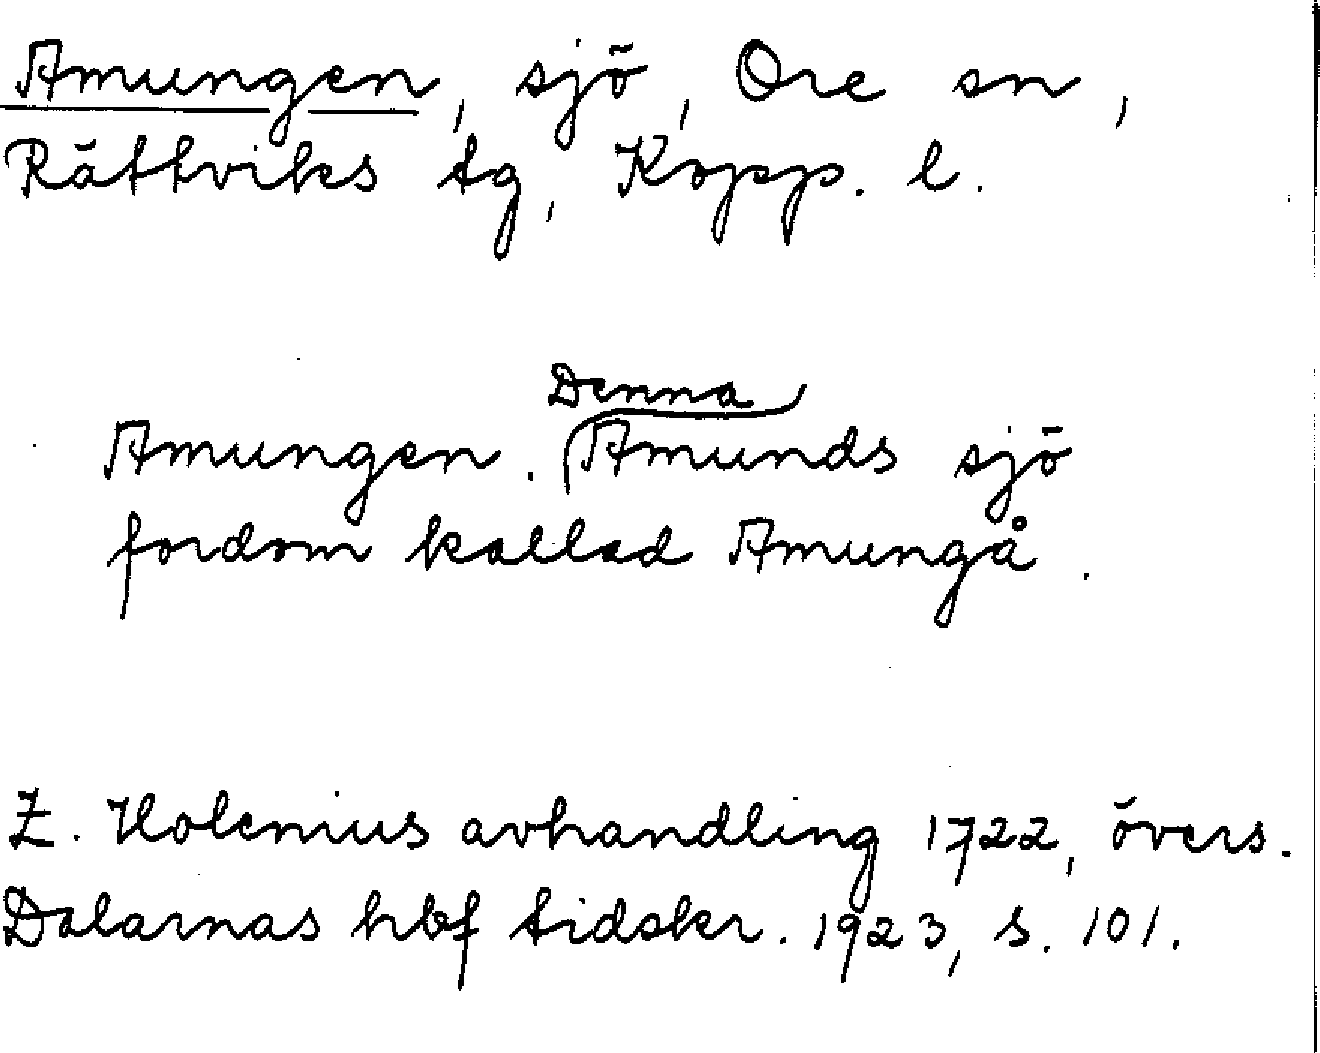 Amungen, sjö, Ore sn,
Rättviks tg, Kopp. l.
Denna
Amungen. Amunds sjö
fordom kallad Amungå.
Z. Holenius avhandling 1722, övers.
Dalarnas hbf tidskr. 1923, s. 101.